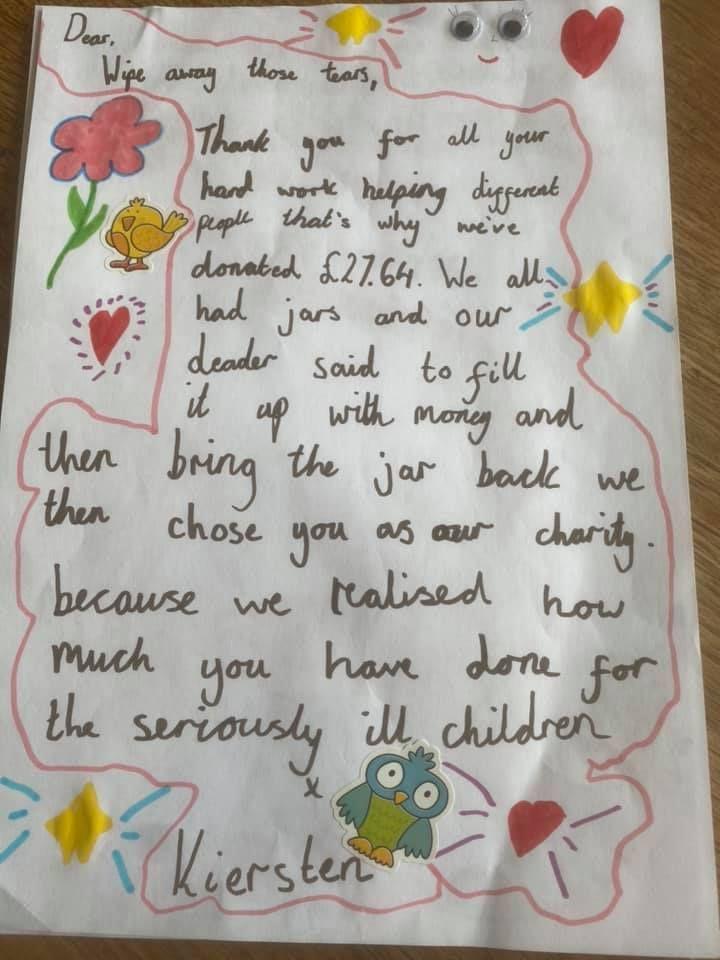 Dear,
Wipe away those tears,
Thank you for all your
hard work helping different
people that's why we've
donated £27.64. We all
had jars and our
deader said to fill
it up with money and
then bring the jar back we
then chose you as our charity.
because we realised how
much you have done for
the seriously ill children
x
Kiersten